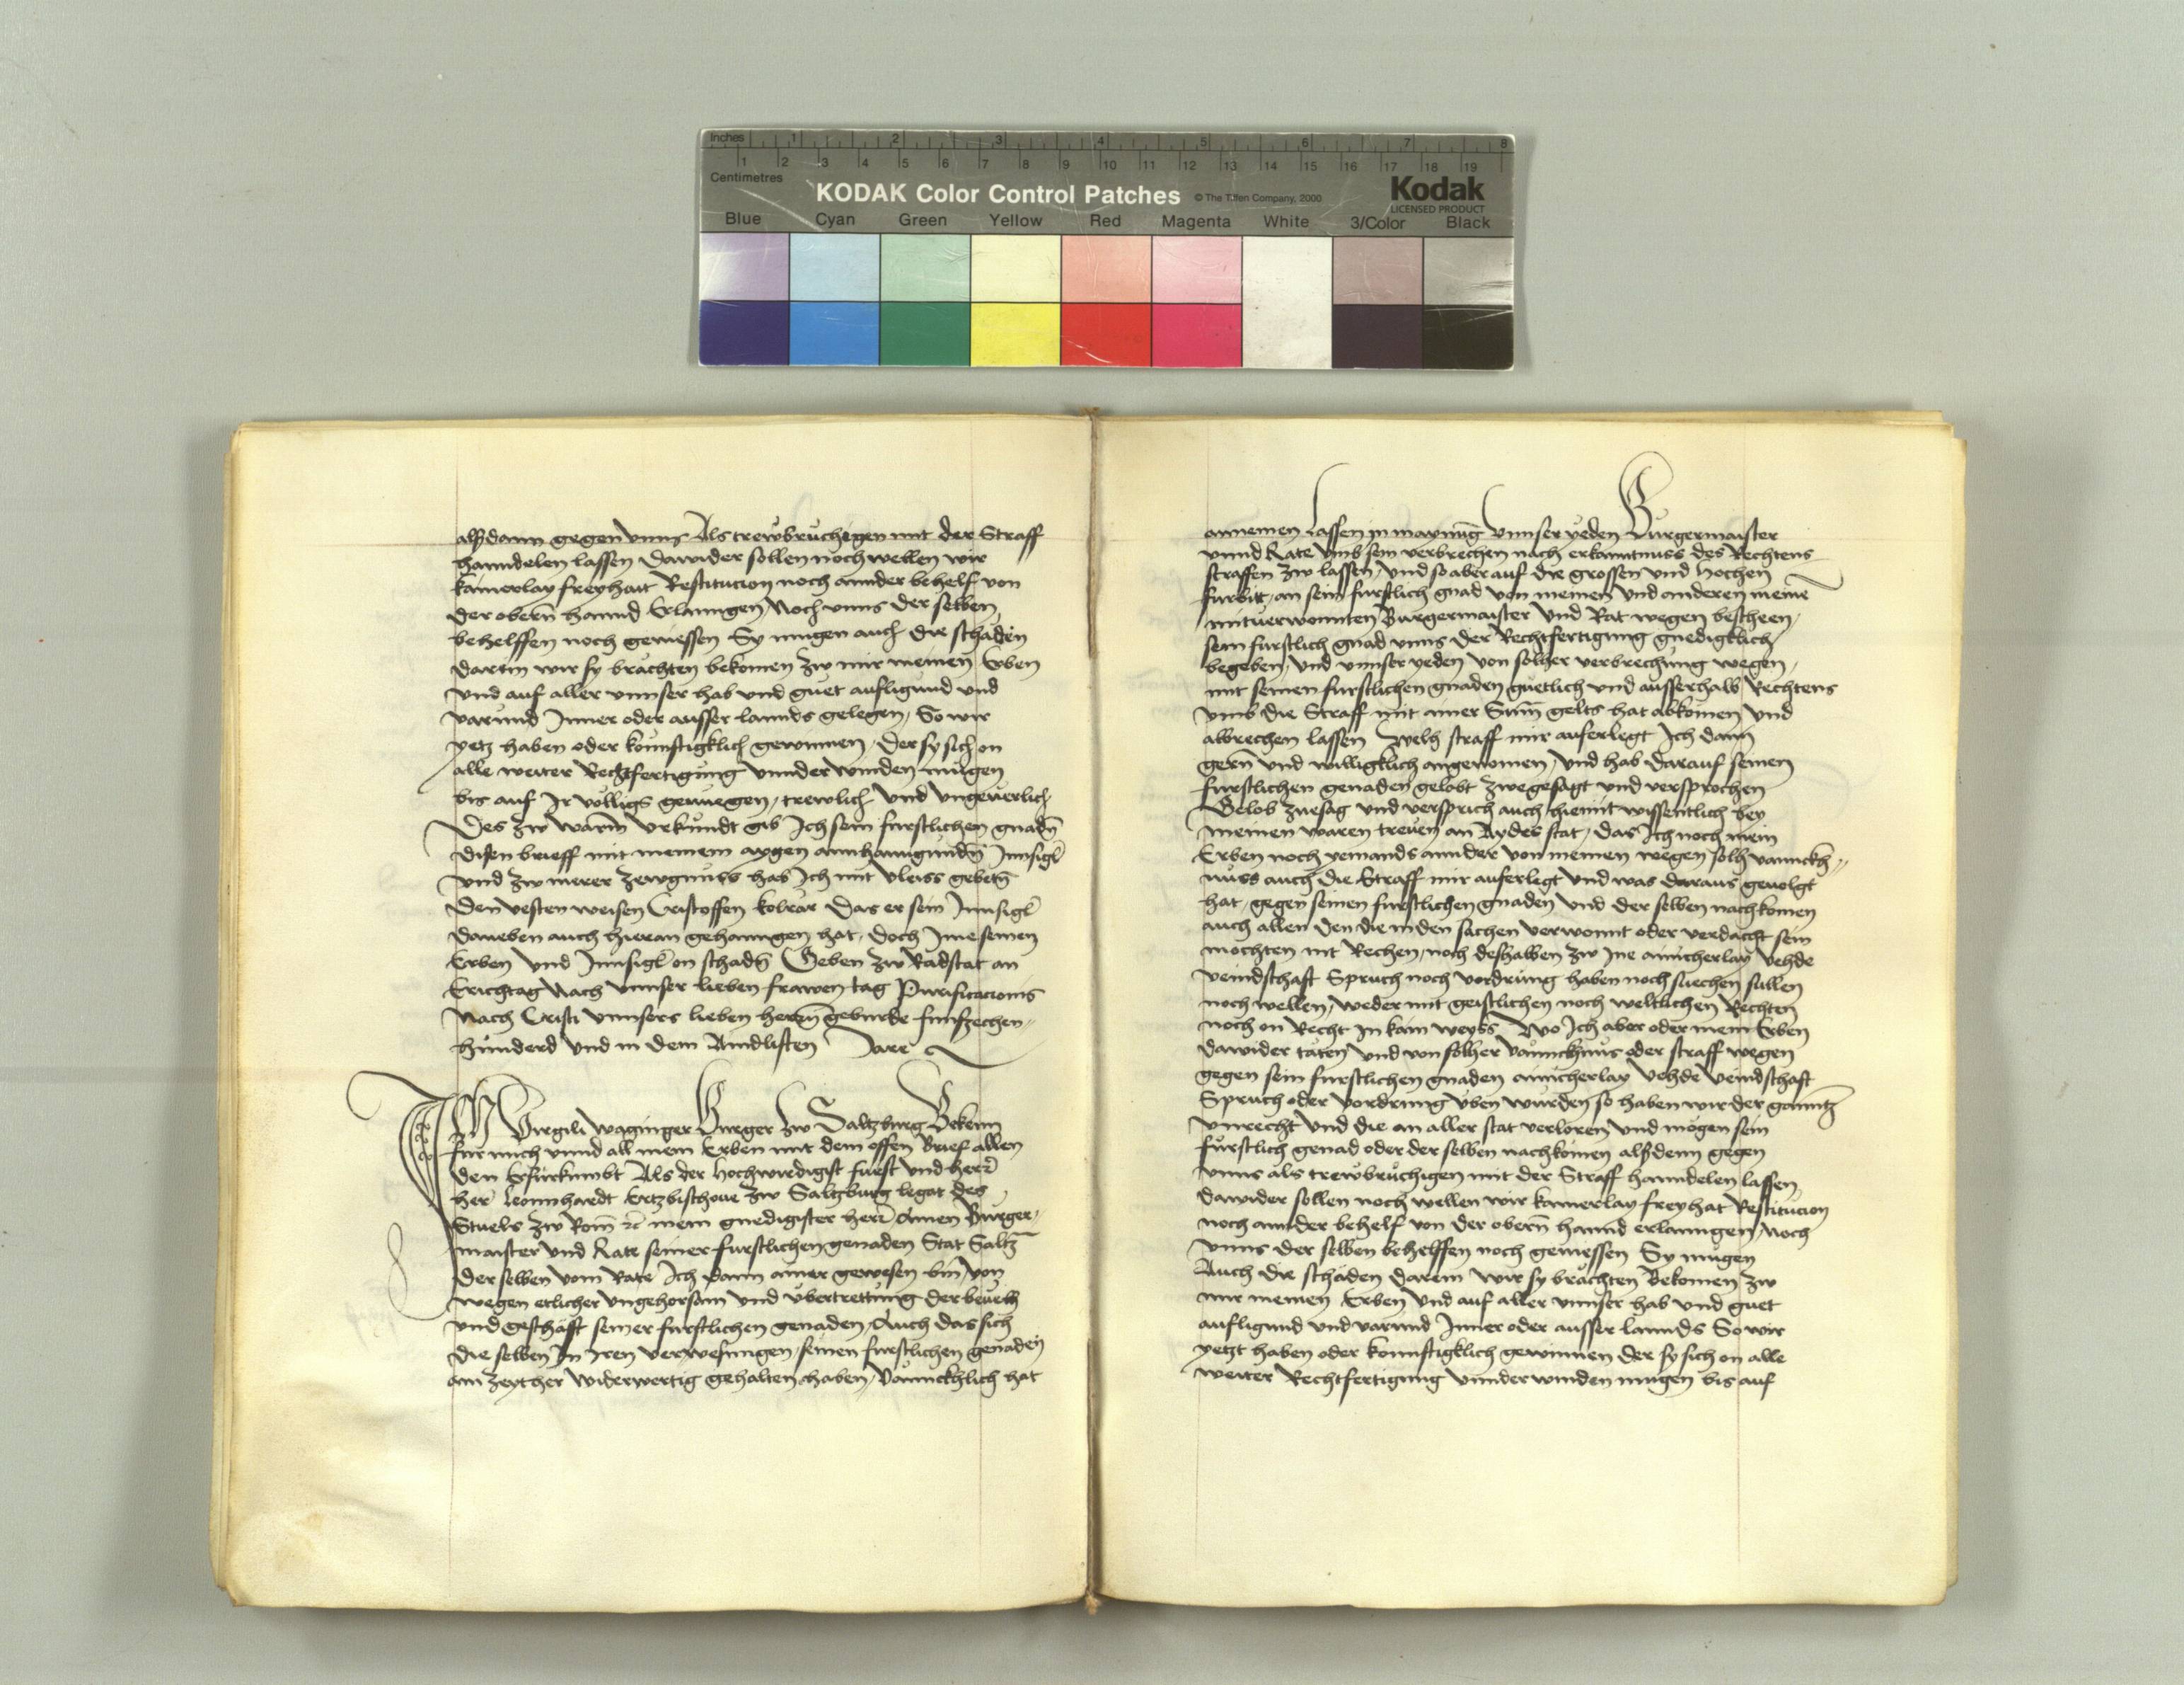 Inches 1 2 3 4 5 6 7 8
1 2 3 4 5 6 7 8 9 10 11 12 13 14 15 16 17 18 19
Centimetres
KODAK Color Control Patches © The Tiffen Company, 2000 Kodak
LICENSED PRODUCT
Blue Cyan Green Yellow Red Magenta White 3/Color Black
alßdann gegen unns Als trewbrüchigen mit der Straff
hanndelen lassen dawider sollen noch wellen wir
kainerlay freyhait Restitucion noch annder behelf von
der obern̄ hannd Erlanngen, Noch unns der selben
behelffen noch geniessen Sy mugen auch die schäden
darein wir sy brächten bekomen zw mir meinen Erben
und auf aller unnser hab und guet aufligund und
varund Inner oder ausser lannds gelegen, So wir
yetz haben oder kounftigklich gewinnen, der sy sich on
alle weiter Rechtfertigung unnderwinden mügen
bis auf Ir völligs genuegen, trewlich und ungeuerlich
Des zw warm̄ urkundt gib Ich sein furstlichen gnadn̄
disen brieff mit meinem aygen anhanngundn̄ Innsigl̄
und zw merer zewgnüss hab Ich mit vleiss gebetn̄
den vesten weisen Cristoffen kolrar das er sein Innsigl̄
daneben auch hieran gehanngen hat, doch Ime seinen
Erben und Innsigl̄ on schadn̄ Geben zw Radstat an
Erichtag Nach unnser lieben frawen tag Purificacionis
Nach Cristi unnsers lieben herrn̄ geburde funfzechen-
hunderd und in dem Aindlisten Jare
ICH Virgili waginger Burger zw Saltzburg Bekenn
für mich unnd all mein Erben mit dem offen Brief allen
den Erfürkumbt Als der hochwirdigist furst und herr̄
her̄ Leonnhardt Ertzbischoue zw Saltzburg legat des
Stuels zw Rom̄ ⁊c̄ mein gnedigister herr̄ Ainen Burger-
maister und Rate seiner furstlichen genaden Stat Saltz̄
der selben vom Rate Ich dann ainer gewesen bin, von
wegen etlicher ungehorsam und übertrettung der beuelh
und geschäfft seiner furstlichen genaden, Auch das sich
die selben In Iren verwesungen, seinen furstlichen genaden
ain zeyther widerwertig gehalten haben, vännckhlich hat
annemen lassen in maynūg unnser yeden Burgermaister
unnd Rate umb sein verbrechen nach erkanntnuss des Rechtens
straffen zw lassen, und so aber auf die grossen und hochen
furbitt, an sein furstlich gnad von meinen und anderen meine
mituerwonnten Burgermaister und Rat wegen bescheen,
sein furstlich gnad unns der Rechtfertigung gnedigklich
begeben, und unnser yeden von solher verbrechung wegen,
mit seinen furstlichen gnaden güetlich und ausserhalb Rechtens
umb die Straff mit ainer Sum̄ gelts hat abkomen und
abbrechen lassen Welh straff mir auferlegt Ich dann
gern̄ und willigklich angenomen, und hab darauf seinen
furstlichen genaden gelobt zwegesagt und versprochen
Gelob zuesag und versprich auch hiemit wissentlich bey
meinen waren treuen an Aydes stat, das Ich noch mein
Erben noch yemands annder von meinen wegen solh vännckh-
nüss auch die Straff mir auferlegt und was daraus geuolgt
hat, gegen seinen furstlichen gnaden und der selben nachkomen
auch allen den die in den sachen verwonnt oder verdacht sein
möchten nit Rechen, noch deshalben zw Ine ainicherlay vehde
veindschaft Spruch noch vordrung haben noch suechen sullen
noch wellen, weder mit geistlichen noch weltlichen Rechten
noch on Recht In kain weyss Wo Ich aber oder mein Erben
dawider täten und von solher vännckhnüs oder straff wegen
gegen sein furstlichen gnaden ainicherlay vehde veindschaft
Spruch oder vordrung üben würden, so haben wir der ganntz
unrecht und die an aller stat verloren und mögen sein
fürstlich genad oder der selben nachkomen alßdenn gegen
unns als trewbrüchigen mit der Straff hanndelen lassen
dawider sollen noch wellen wir kainerlay freyhat Restitucion
noch annder behelf von der obern̄ hannd erlanngen, Noch
unns der selben behelffen noch geniessen Sy mügen
Auch die schäden darein wir sy brächten Bekomen zw
mir meinen Erben und auf aller unnser hab und guet
aufligund und varund Inner oder ausser lannds So wir
yetzt haben oder kounftigklich gewinnen der sy sich on alle
weiter Rechtfertigung unnderwinden mugen bis auf